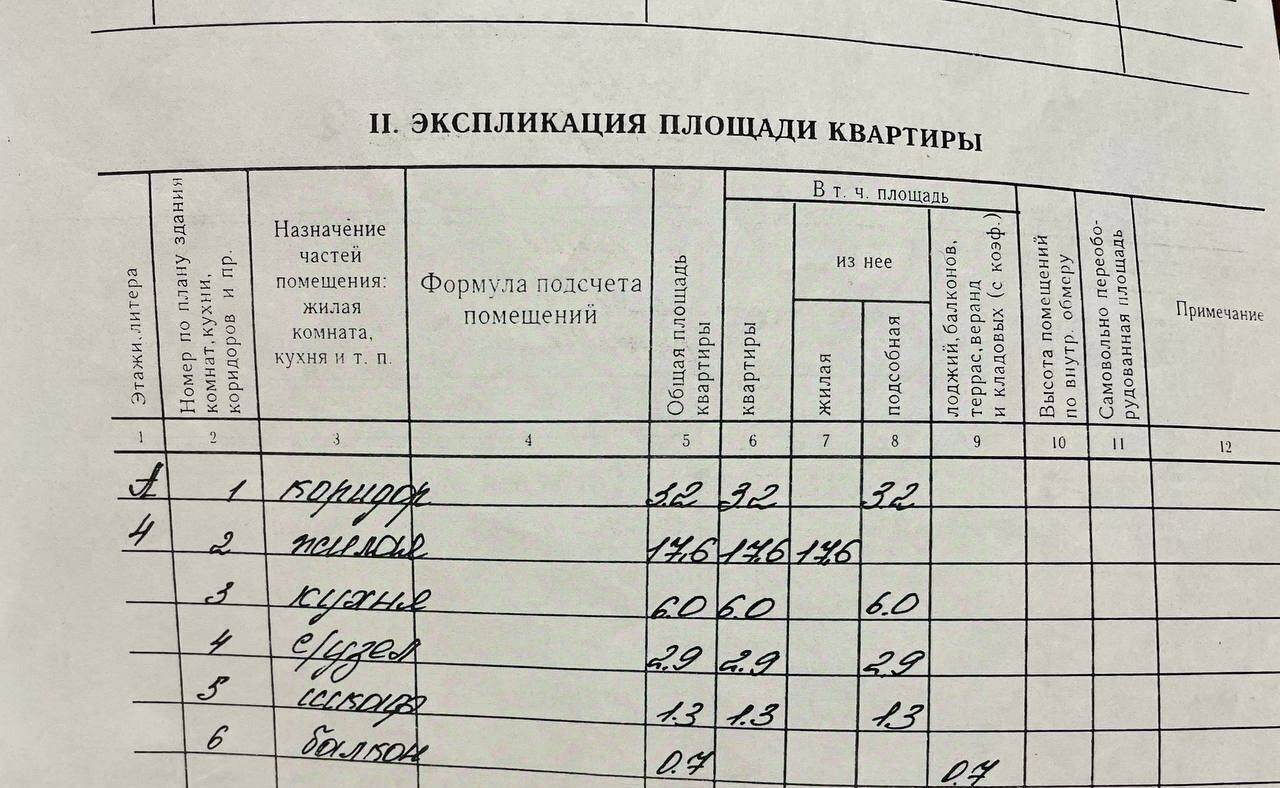 II. ЭКСПЛИКАЦИЯ ПЛОЩАДИ КВАРТИРЫ
Этажи, литера
Номер по плану здания
комнат, кухни,
коридоров и пр.
Назначение
частей
помещения:
жилая
комната,
кухня и т. п.
Формула подсчета
помещений
Общая площадь
квартиры
В т. ч. площадь
квартиры
из нее
жилая
подсобная
лоджий, балконов,
террас, веранд
и кладовых (с коэф.)
Высота помещений
по внутр. обмеру
Самовольно переобо-
рудованная площадь
Примечание
1 2 3 4 5 6 7 8 9 10 11 12
А 1 коридор 3.2 3.2 3.2
4 2 жилая 17,6 17.6 17,6
3 кухня 6.0 6.0 6.0
4 с/узел 2.9 2.9 2.9
5 шкаф 1.3 1.3 1.3
6 балкон 0.7 0.7